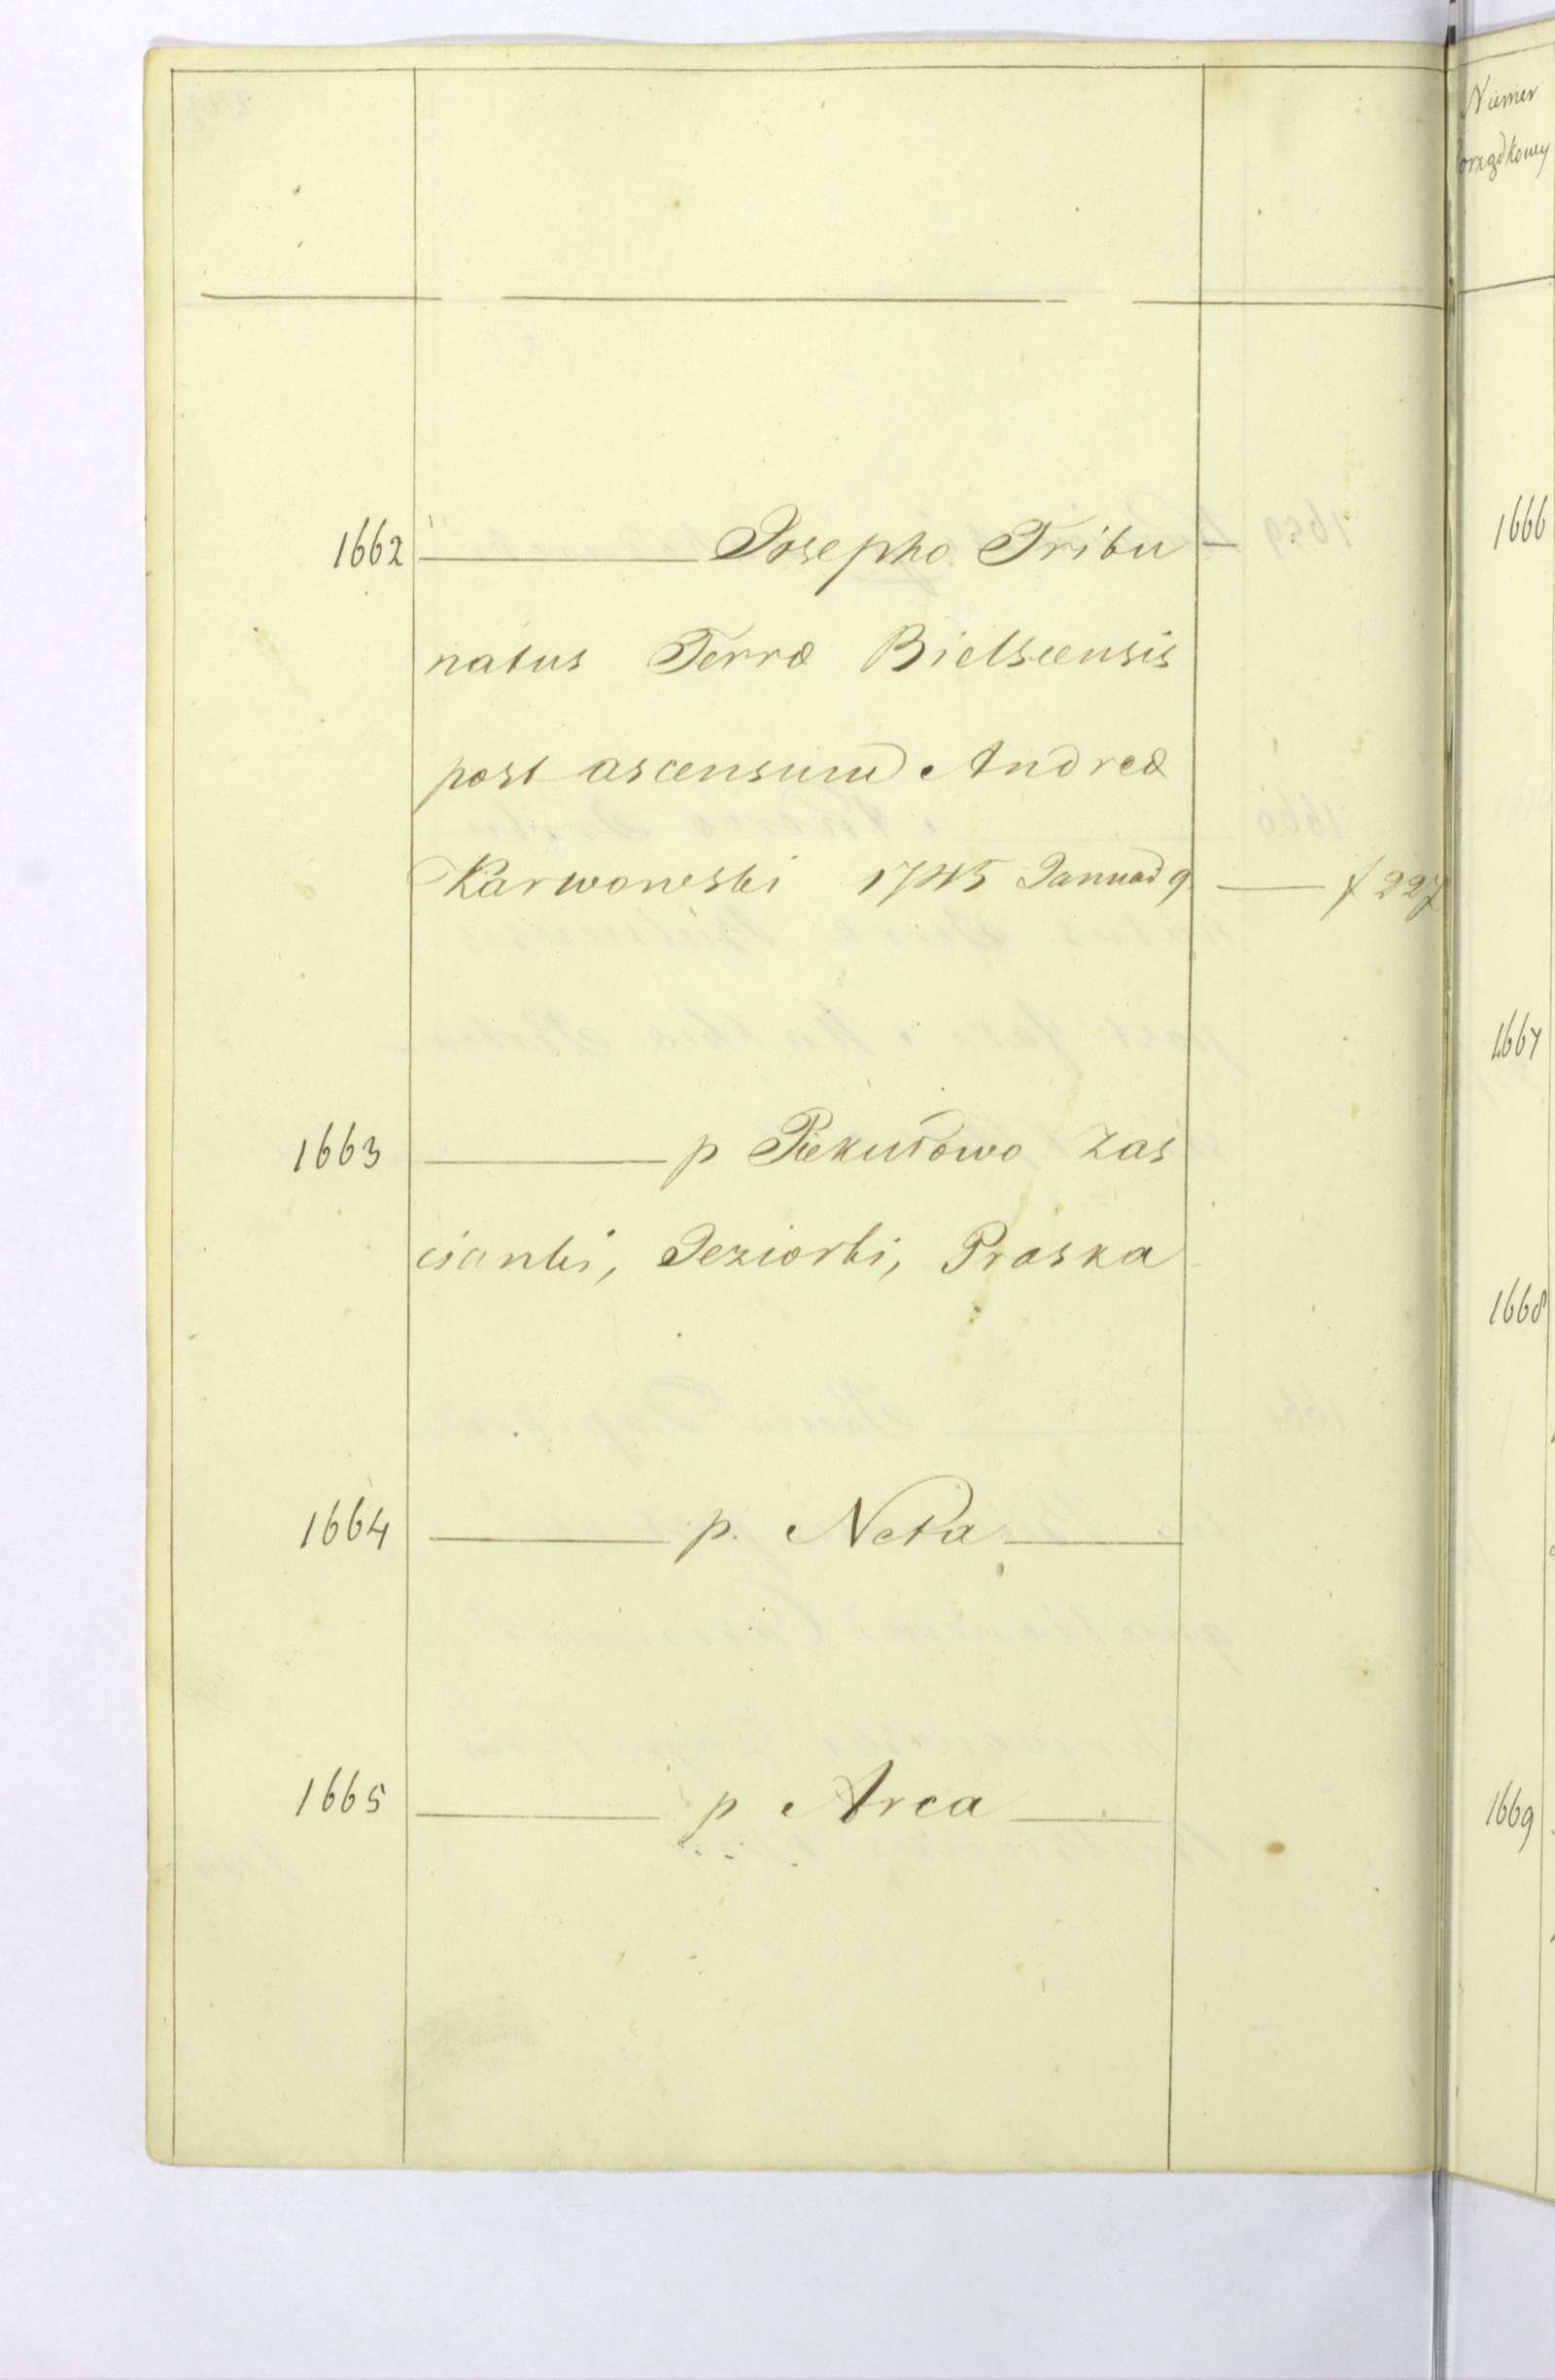 1662 — Josepho Tribu
natus Terræ Bielscensis
post ascensum Andreæ
Karwowski 1745 Januar 9 — f 227
1663 — p Piekutowo Zas
cianki, Jeziorki, Proszka
1664 — p. Neta —
1665 — p Arca —
Numer
Porządkowy
1666
1667
1668
1669